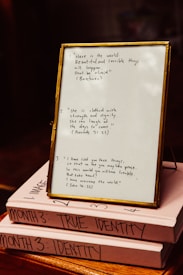 Here is the world.
Beautiful and terrible things
will happen.
Don't be afraid."
"She is clothed with
strength and dignity
the days to come"
(Proverbs 31:25)
3. "I have told you these things,
so that in me you may have peace.
In this world you will have trouble.
But take heart!
I have overcome the world"
MONTH 3: TRUE IDENTITY
MONTH 3: IDENTITY